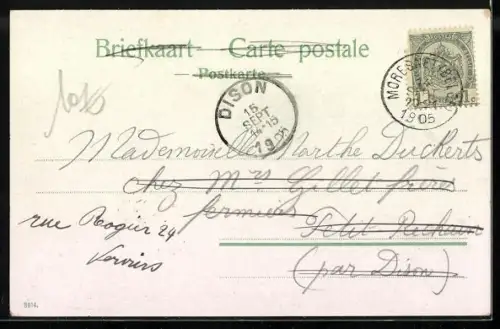 Briefkaart - Carte postale
Postkarte
DISON
15
SEPT
14-15
1905
MORES
1905
Mademoiselle Marthe Duckerts
chez Mrs Gillet frères
fermiers
Petit Rechain
(par Dison)
rue Rogier 24
Verviers